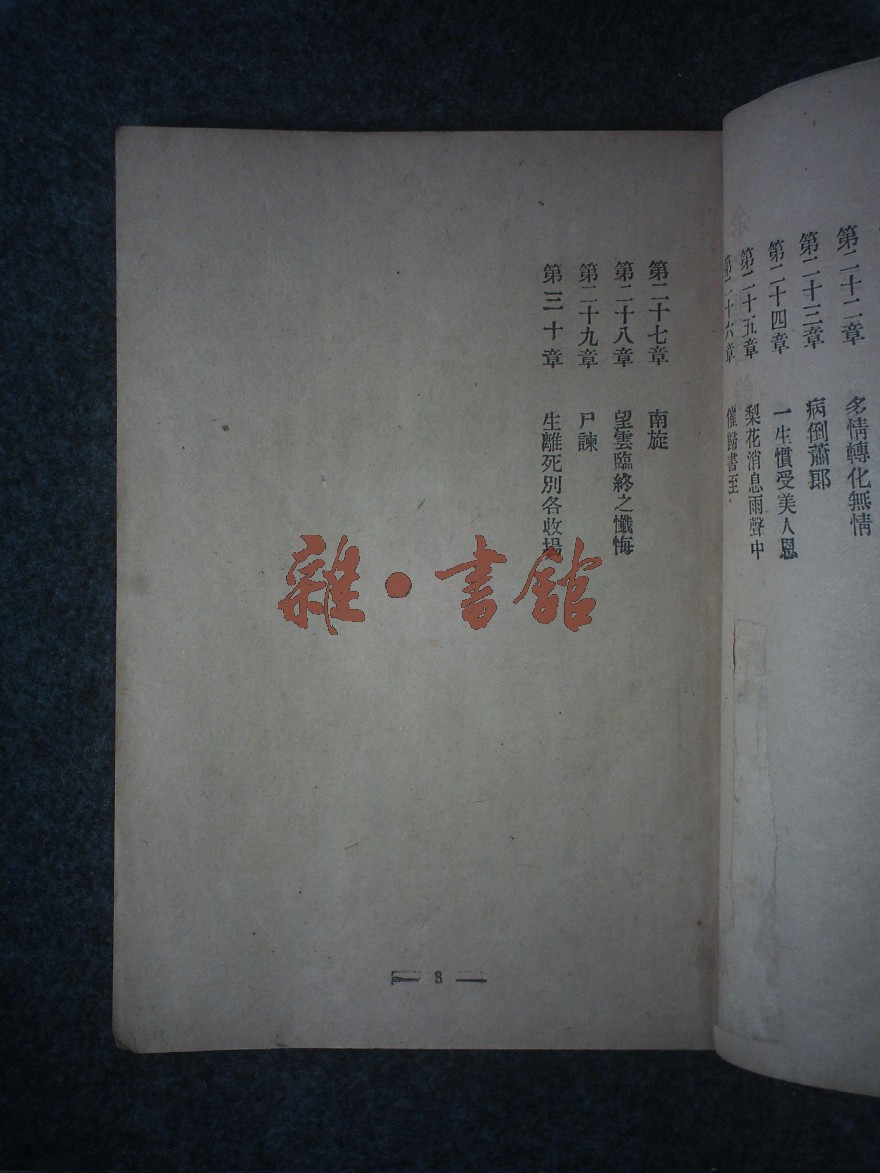 第二十二章 多情轉化無情
第二十三章 病倒蕭郎
第二十四章 一生慣受美人恩
第二十五章 梨花消息雨聲中
第二十六章 催歸書至
第二十七章 南旋
第二十八章 望雲臨終之懺悔
第二十九章 尸諫
第三十章 生離死別各收場
雜·書館
3